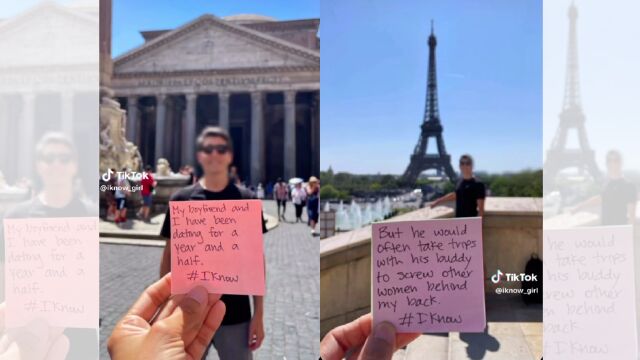 My boyfriend and
I have been
dating for a
year and a
half.
#IKnow
TikTok
@iknow_girl
But he would
often take trips
with his buddy
to screw other
women behind
my back.
#IKnow
TikTok
@iknow_girl